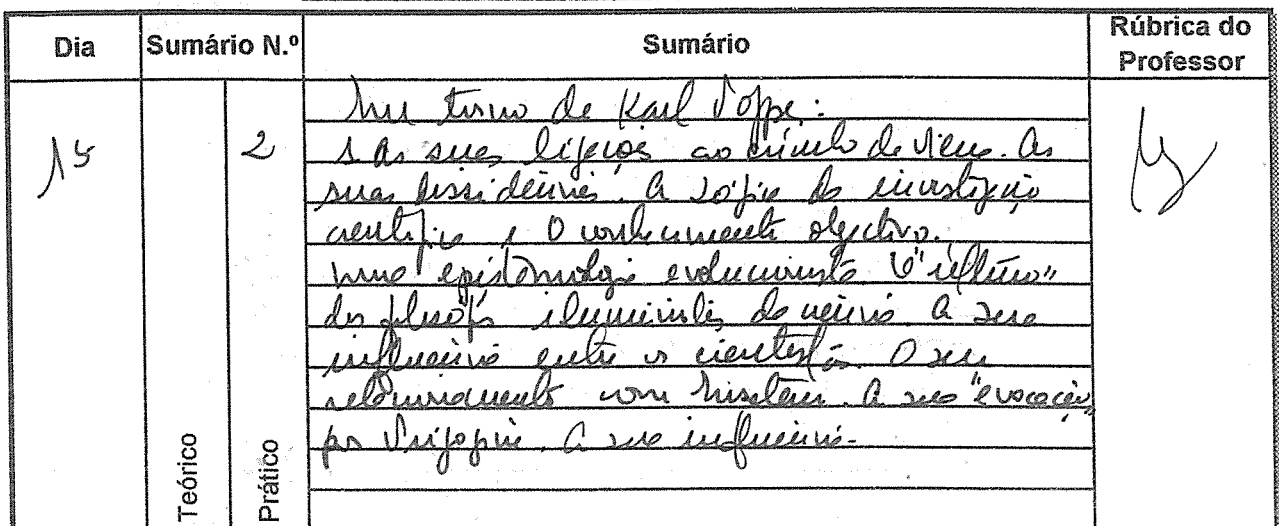 Dia Sumário N.º Sumário Rúbrica do Professor
Em torno de Karl Popper:
15 2 As suas ligações ao círculo de Viena. As
suas dissidências. A Lógica da investigação
científica e O conhecimento objectivo.
uma epistemologia evolucionista O "último"
dos filósofos iluministas da ciência. A sua
influência entre os cientistas. O seu
relacionamento com Einstein. A sua "evocação"
por Prigogine. A sua influência.
Teórico
Prático